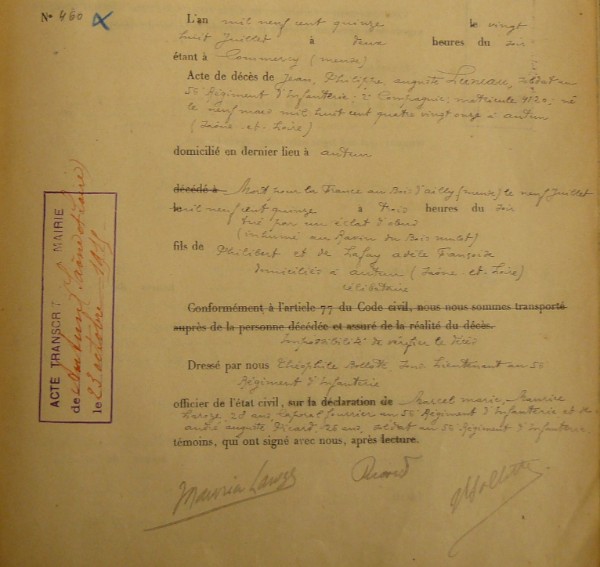 N° 460
L'an mil neuf cent quinze le vingt
huit Juillet à deux heures du soir
étant à Commercy (meuse)
Acte de décès de Jean, Philippe, auguste soldat au
5 Régiment d'Infanterie, 2e Compagnie, matricule 4120, né
le neuf mars mil huit cent quatre vingt onze à autun
(Saône-et-Loire)
domicilié en dernier lieu à autun
décédé à Mort pour la France au Bois d'ailly (meuse) le neuf Juillet
le mil neuf cent quinze à trois heures du soir
tué par un éclat d'obus
(inhumé au Ravin du Bois mulot)
fils de Philibert et de Lafay adèle Françoise
domiciliés à autun (Saône-et-Loire)
célibataire
Conformément à l'article 77 du Code civil, nous nous sommes transporté
auprès de la personne décédée et assuré de la réalité du décès.
Impossibilité de vérifier le décès
Dressé par nous Théophile Sous Lieutenant au 5
Régiment d'Infanterie
officier de l'état civil, sur la déclaration de Marcel marie, Maurice
Laroze, 28 ans, caporal fourrier au 5 Régiment d'Infanterie et de
andré auguste Picard, 26 ans, soldat au 5 Régiment d'Infanterie,
témoins, qui ont signé avec nous, après lecture.
Maurice Laroze Picard
ACTE TRANSCRIT A MAIRIE
de Autun (Saône et Loire)
le 23 octobre 1915